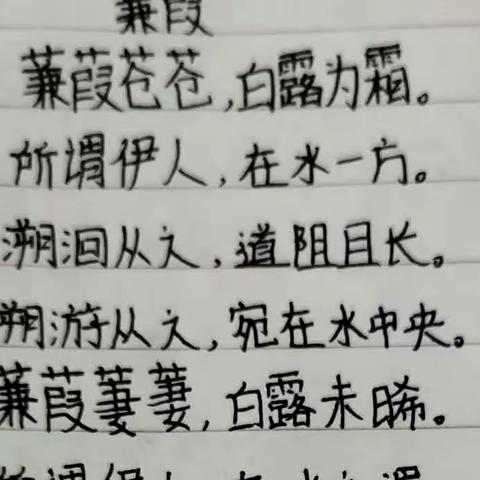 蒹葭
蒹葭苍苍,白露为霜。
所谓伊人,在水一方。
溯洄从之,道阻且长。
溯游从之,宛在水中央。
蒹葭萋萋,白露未晞。